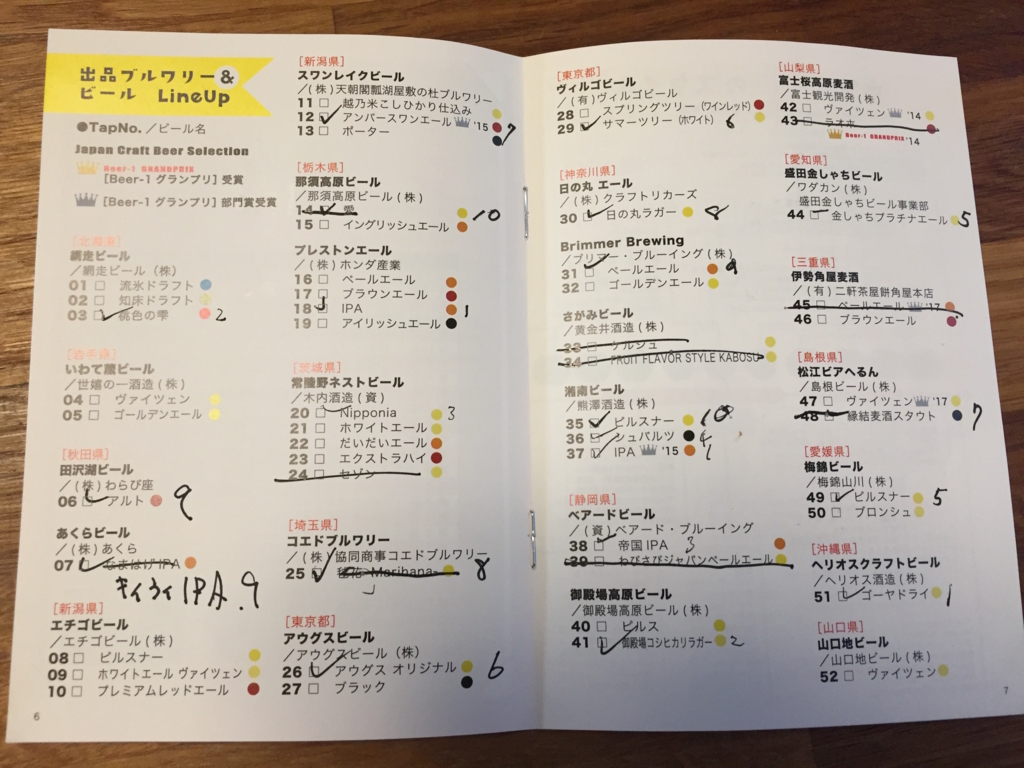 出品ブルワリー&
ビール LineUp
●TapNo./ビール名
Japan Craft Beer Selection
Beer-1 GRANDPRIX
[Beer-1 グランプリ] 受賞
[Beer-1 グランプリ] 部門賞受賞
[北海道]
網走ビール
/網走ビール(株)
01 □ 流氷ドラフト
02 □ 知床ドラフト
03 □ 桃色の雫 2
[岩手県]
いわて蔵ビール
/世嬉の一酒造(株)
04 □ ヴァイツェン
05 □ ゴールデンエール
[秋田県]
田沢湖ビール
/(株)わらび座
06 □ アルト 9
あくらビール
/(株)あくら
07 □ なまはげIPA
キィウィIPA.9
[新潟県]
エチゴビール
/エチゴビール(株)
08 □ ピルスナー
09 □ ホワイトエール ヴァイツェン
10 □ プレミアムレッドエール
6
[新潟県]
スワンレイクビール
/(株)天朝閣瓢湖屋敷の杜ブルワリー
11 □ 越乃米こしひかり仕込み
12 □ アンバースワンエール '15 7
13 □ ポーター
[栃木県]
那須高原ビール
/那須高原ビール(株)
14 □ 愛 10
15 □ イングリッシュエール
プレストンエール
/(株)ホンダ産業
16 □ ペールエール
17 □ ブラウンエール
18 □ IPA 1
19 □ アイリッシュエール
[茨城県]
常陸野ネストビール
/木内酒造(資)
20 □ Nipponia 3
21 □ ホワイトエール
22 □ だいだいエール
23 □ エクストラハイ
24 □ セゾン
[埼玉県]
コエドブルワリー
/(株)協同商事コエドブルワリー
25 □ 毬花-Marihana- 8
[東京都]
アウグスビール
/アウグスビール(株)
26 □ アウグス オリジナル 6
27 □ ブラック
[東京都]
ヴィルゴビール
/(有)ヴィルゴビール
28 □ スプリングツリー (ワインレッド)
29 □ サマーツリー (ホワイト) 6
[神奈川県]
日の丸 エール
/(株)クラフトリカーズ
30 □ 日の丸ラガー 8
Brimmer Brewing
/ブリマー・ブルーイング(株)
31 □ ペールエール 9
32 □ ゴールデンエール
さがみビール
/黄金井酒造(株)
33 □ ケルシュ
34 □ FRUIT FLAVOR STYLE KABOSU
湘南ビール
/熊澤酒造(株)
35 □ ピルスナー 10
36 □ シュバルツ 4
37 □ IPA '15 1
[静岡県]
ベアードビール
/(資)ベアード・ブルーイング
38 □ 帝国IPA 3
39 □ わびさびジャパンペールエール
御殿場高原ビール
/御殿場高原ビール(株)
40 □ ピルス
41 □ 御殿場コシヒカリラガー 2
[山梨県]
富士桜高原麦酒
/富士観光開発(株)
42 □ ヴァイツェン '14
43 □ ラオホ
Beer-1 GRANDPRIX '14
[愛知県]
盛田金しゃちビール
/ワダカン(株)
盛田金しゃちビール事業部
44 □ 金しゃちプラチナエール 5
[三重県]
伊勢角屋麦酒
/(有)二軒茶屋餅角屋本店
45 □ ペールエール '17
46 □ ブラウンエール
[島根県]
松江ビアへるん
/島根ビール(株)
47 □ ヴァイツェン '17
48 □ 縁結麦酒スタウト 7
[愛媛県]
梅錦ビール
/梅錦山川(株)
49 □ ピルスナー 5
50 □ ブロンシュ
[沖縄県]
ヘリオスクラフトビール
/ヘリオス酒造(株)
51 □ ゴーヤドライ 1
[山口県]
山口地ビール
/山口地ビール(株)
52 □ ヴァイツェン
7